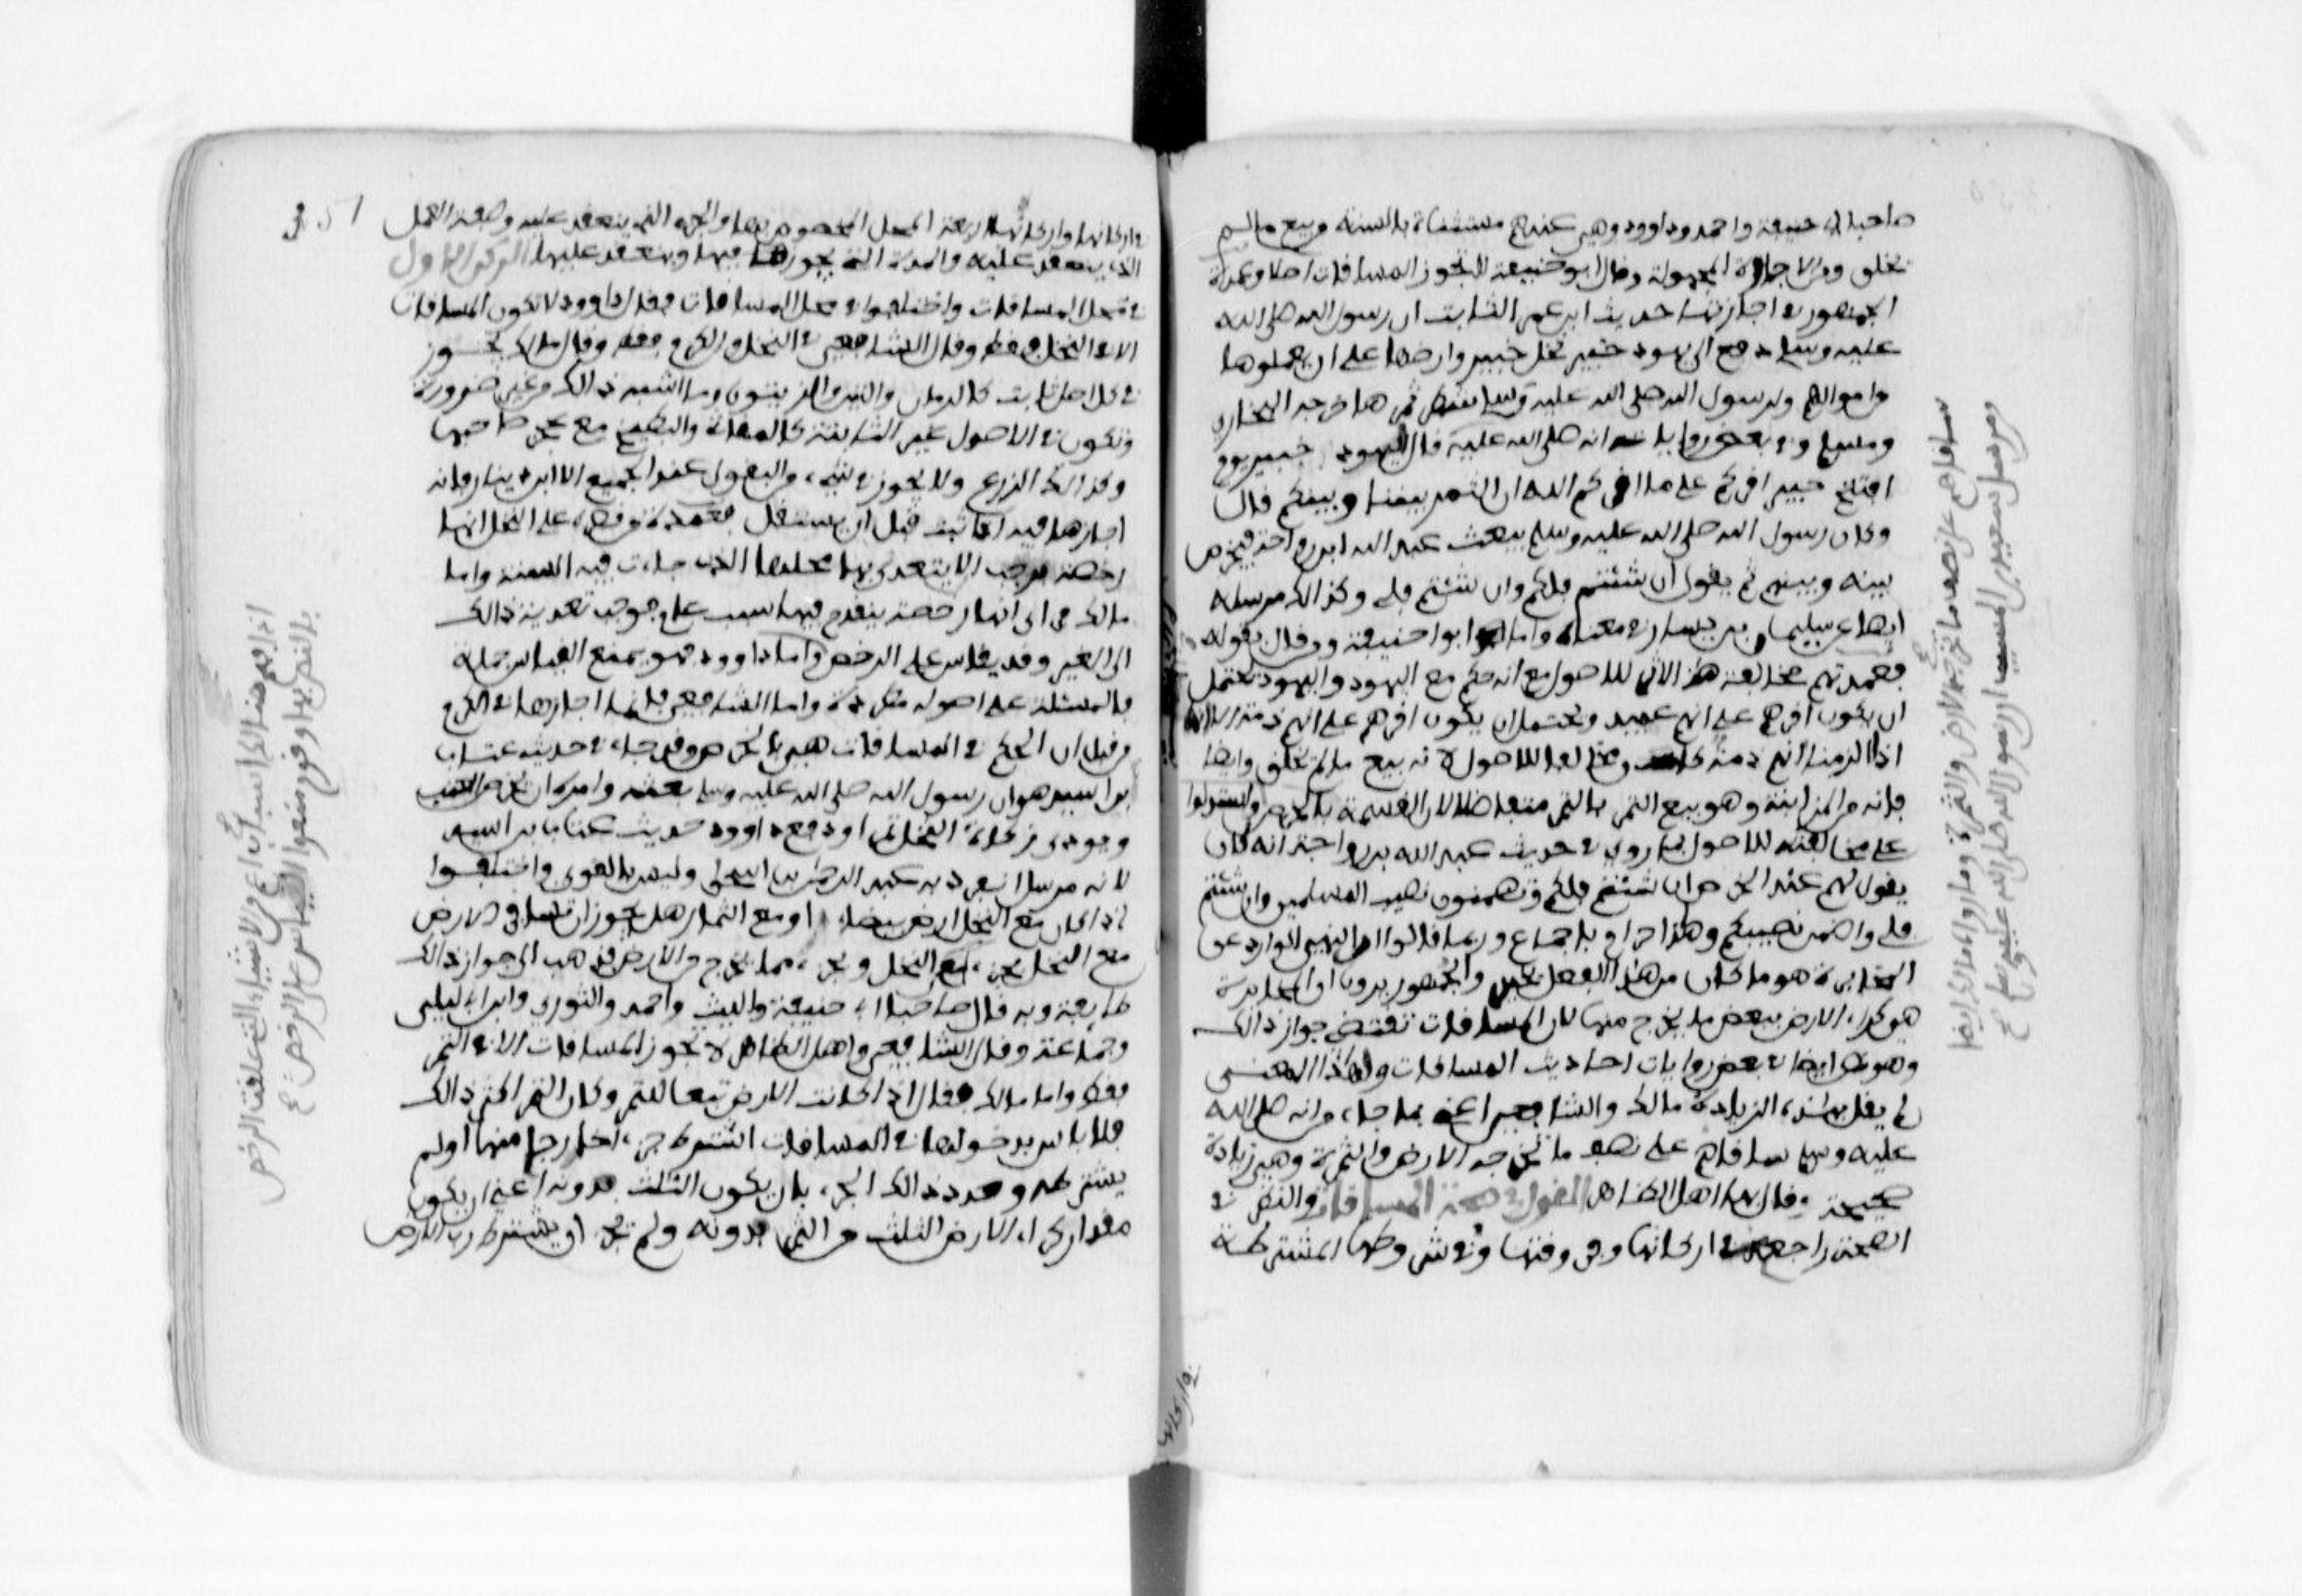 صاحبا ابي حنيفة واحمد وداوود وهي عندهم مستثناة بالسنة من بيع ما لم
يخلق ومن الاجارة المجهولة وقال ابو حنيفة لا تجوز المساقات اصلا وعمدة
الجمهور في اجازتها حديث ابن عمر الثابت ان رسول الله صلى الله
عليه وسلم دفع الى يهود خيبر نخل خيبر وارضها على ان يعملوها
من اموالهم ولرسول الله صلى الله عليه وسلم شطر ثمرها خرجه البخاري
ومسلم وفي بعض رواياته انه صلى الله عليه قال لليهود خيبر يوم
افتتح خيبر اقركم على ما اقركم الله ان الثمر بيننا وبينكم قال
وكان رسول الله صلى الله عليه وسلم يبعث عبد الله ابن رواحة فيخرص
بينه وبينهم ثم يقول ان شئتم فلكم وان شئتم فلي وكذالك مرسله
ايضا عن سليمان بن يسار في معناه واما ابوا حنيفة ومن قال بقوله
فعمدتهم مخالفة هذا الاثر للاصول مع انه حكم مع اليهود واليهود تحتمل
ان يكون اقرهم على انهم عبيد ويحتمل ان يكون اقرهم على انهم ذمة الا انا
اذا انزلنا انهم ذمة كان مخالفا للاصول لانه بيع ما لم يخلق وايضا
فانه من المزابنة وهو بيع التمر بالتمر متفاضلا لان القسمة بالخرص واستدلوا
على مخالفته للاصول بما روي في حديث عبد الله بن رواحة انه كان
يقول لهم عند الخرص ان شئتم فلكم وتضمنون نصيب المسلمين وان شئتم
فلي واضمن نصيبكم وهذا حرام باجماع وربما قالوا ان النهي الوارد عن
المخابرة هو ما كان من هذا الفعل بخيبر والجمهور يرون ان المخابرة
هو كراء الارض ببعض ما يخرج منها لان المساقات تقتضي جواز ذالك
وهو ايضا في بعض روايات احاديث المساقات ولهذا المعنى
لم يقل بهذه الزيادة مالك والشافعي اعني بما جاء من انه صلى الله
عليه وسلم ساقاهم على نصف ما تخرجه الارض والثمرة وهي زيادة
صحيحة وقال بها اهل الظاهر القول في صحة المساقاة والنظر في
الصحة راجع في اركانها وفي وقتها وفي شروطها المشترطة
ساقاهم على نصف ما تخرجه الارض والثمرة وما رواه مالك ايضا
من مرسل سعيد بن المسيب ان رسول الله صلى الله عليه وسلم
في اركانها
351
في اركانها واركانها اربعة المحل المخصوص بها والجزء الذي ينعقد عليه وصفة العمل
الذي ينعقد عليه والمدة التي تجوز فيها وينعقد عليها الركن الاول
في محل المساقات واختلفوا في محل المساقات فقال داوود لا تكون المساقات
الا في النخل فقط وقال الشافعي في النخل والكرم فقط وقال مالك تجوز
في كل اصل ثابت كالرمان والتين والزيتون وما اشبه ذالك من غير ضرورة
وتكون في الاصول غير الثابتة كالمقاثي والبطيخ مع عجز صاحبها
وكذالك الزرع ولا تجوز في شيء من البقول عند الجميع الا ابن دينار فانه
اجازها فيه اذا نبت قبل ان يستقل فعمدة من قصره على النخل انها
رخصة فوجب الا يتعدى بها محلها الذي جاءت فيه السنة واما
مالك فراى انها رخصة ينقدح فيها سبب عام فوجب تعدية ذالك
الى الغير وقد يقاس على الرخص واما داوود فهو يمنع القياس جملة
فالمسئلة على اصوله مطردة واما الشافعي فانما اجازها في الكرم
من قبل ان الحكم في المساقات هي بالخرص وقد جاء في حديث عتاب
بن اسيد هو ان رسول الله صلى الله عليه وسلم بعثه وامره ان يخرص العنب
ويودى زكاة النخل تمرا ودفع داوود حديث عتاب بن اسيد
لانه مرسل انفرد به عبد الرحمن بن اسحق وليس بالقوي واختلفوا
اذا كان مع النخل ارض بيضاء او مع الثمار هل يجوز ان تساقى الارض
مع النخل بجزء من النخل وبجزء مما يخرج من الارض فذهب الى جواز ذالك
طايفة وبه قال صاحبا ابي حنيفة والليث واحمد والثوري وابن ابي ليلى
وجماعة وقال الشافعي واهل الظاهر لا تجوز المساقات الا في التمر
فقط واما مالك فقال اذا كانت الارض تبعا للثمر وكان الثمر اكثر ذالك
فلا باس بدخولها في المساقات اشترط جزءا خارجا منها او لم
يشترطه وحدد ذالك الجزء بان يكون الثلث فدونه اعني ان يكون
مقدار كراء الارض الثلث من الثمر فدونه ولم يجز ان يشترط رب الارض
اذا فهم هنالك اسباب اعم من الاشياء التي علقت الرخص
بالنص بها وقوم منعوا القياس على الرخص